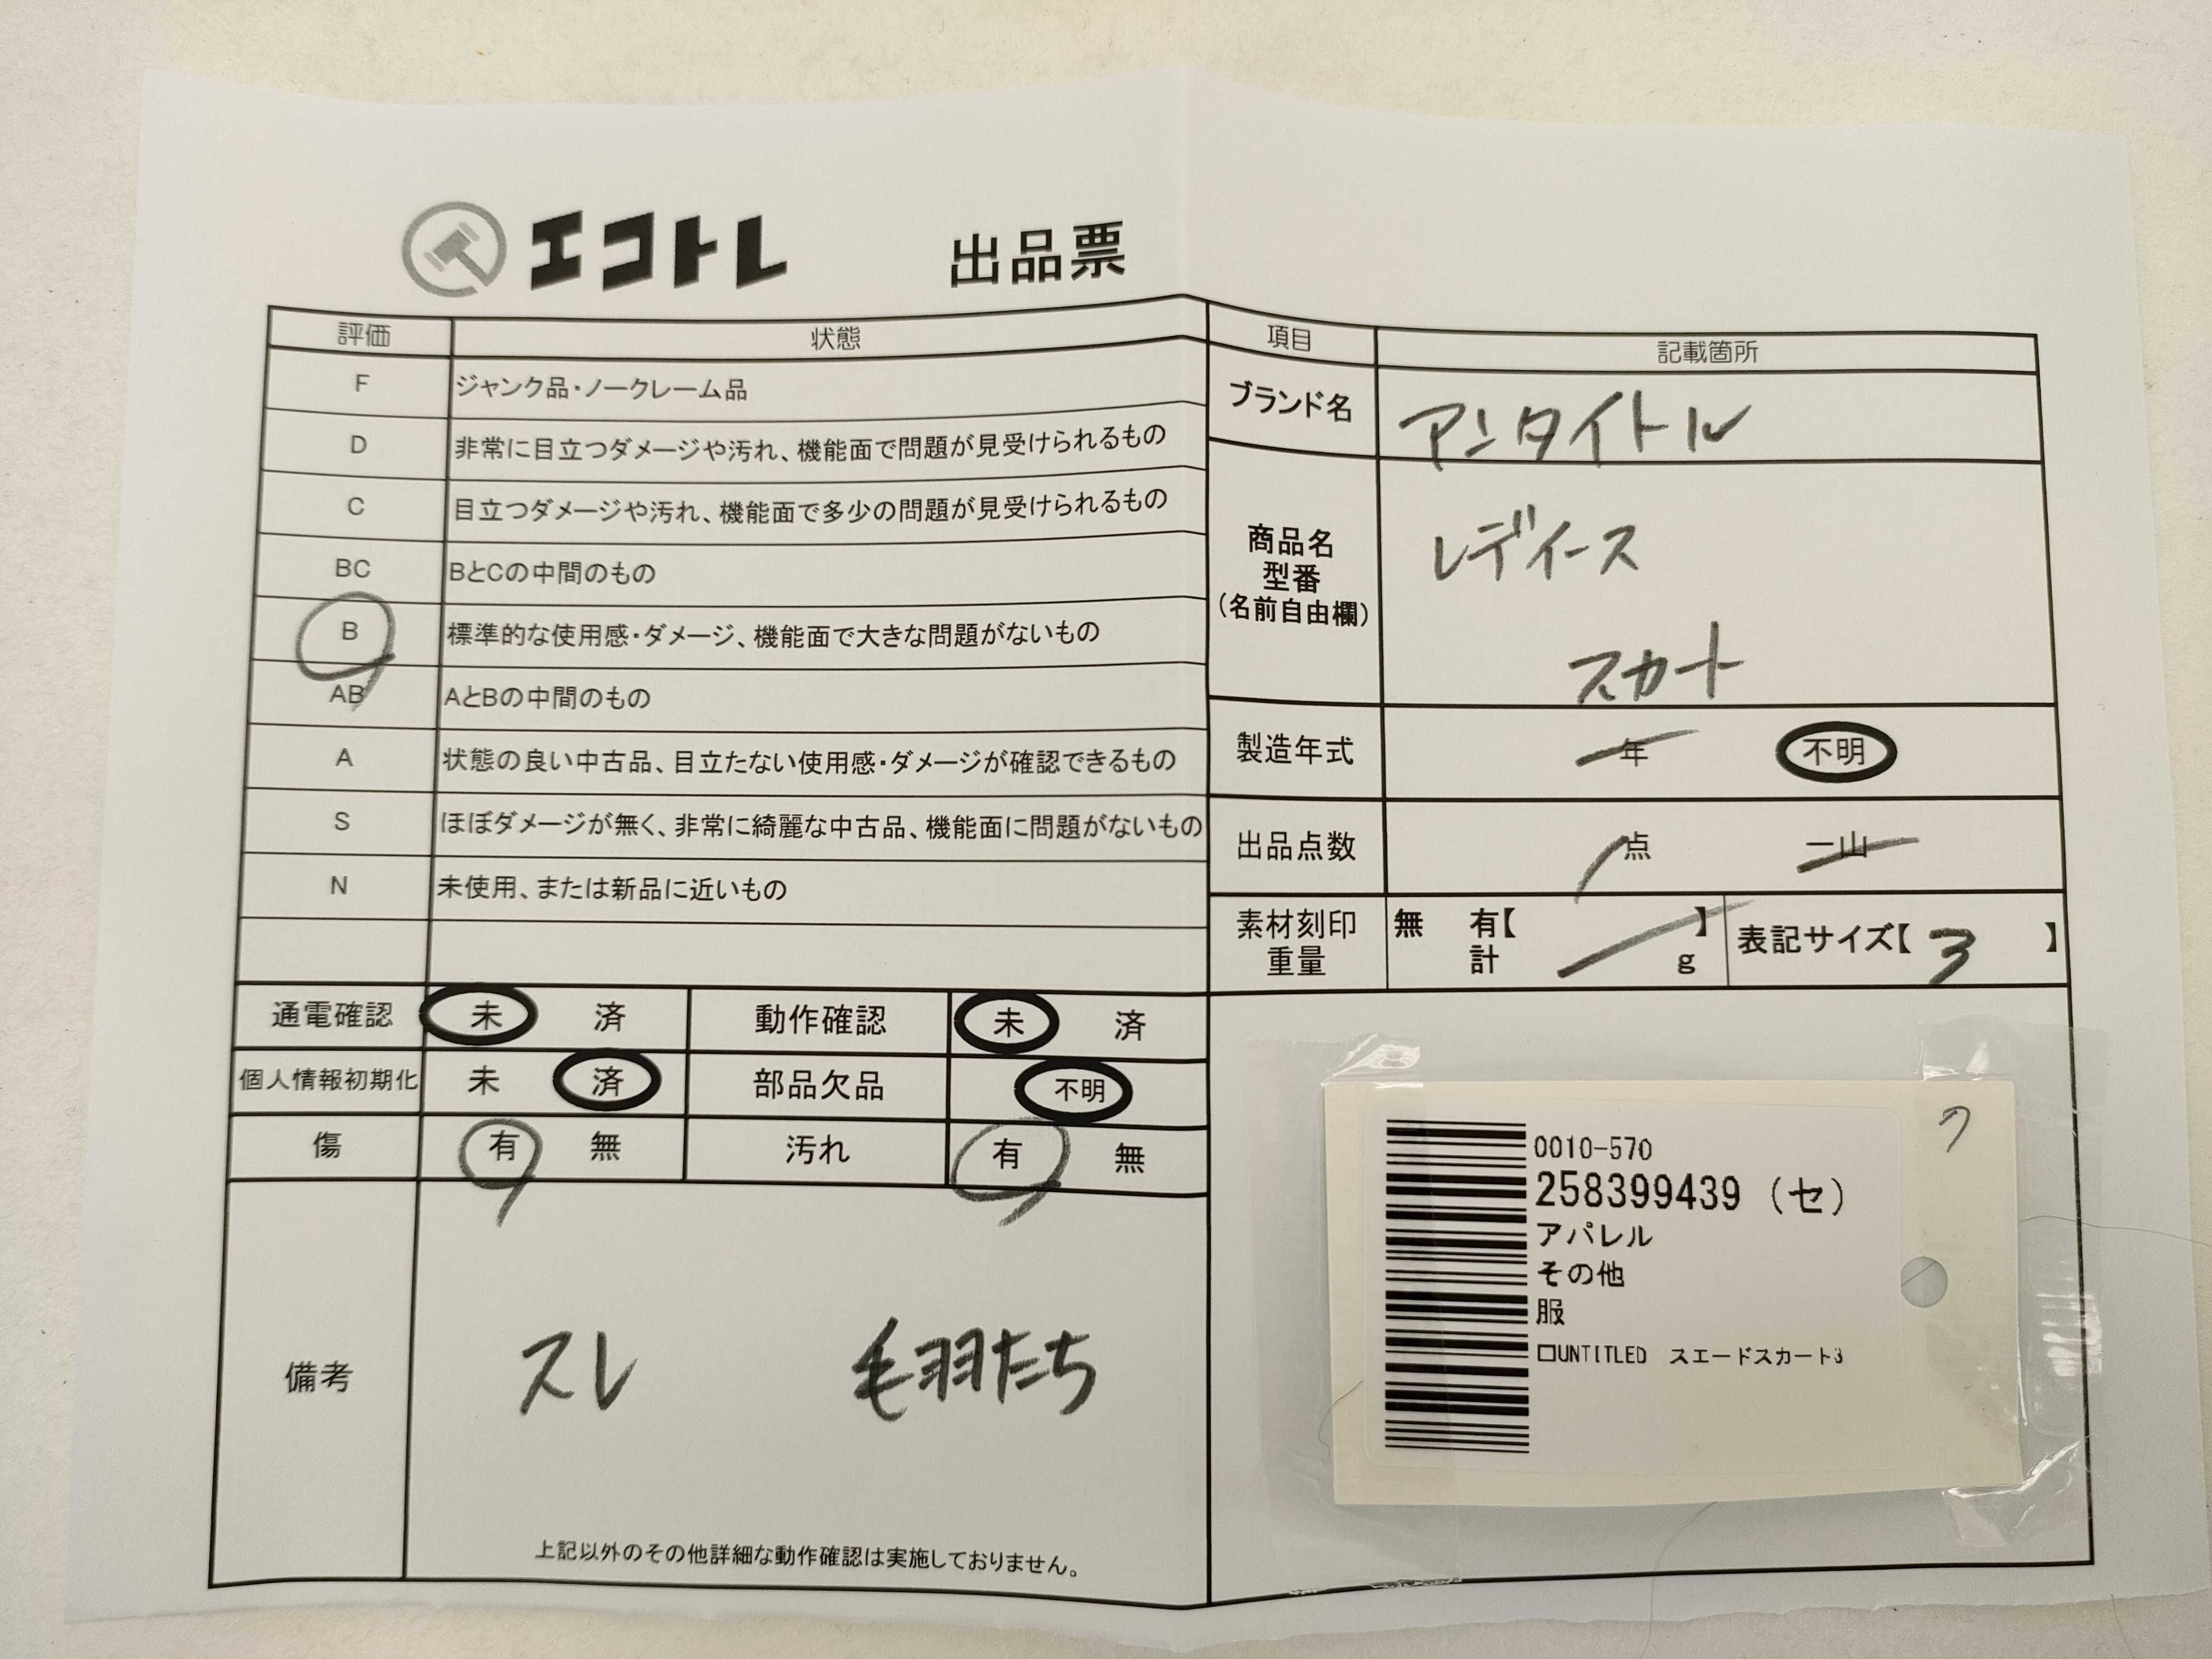 エコトレ 出品票
評価 状態
F ジャンク品・ノークレーム品
D 非常に目立つダメージや汚れ、機能面で問題が見受けられるもの
C 目立つダメージや汚れ、機能面で多少の問題が見受けられるもの
BC BとCの中間のもの
B 標準的な使用感・ダメージ、機能面で大きな問題がないもの
AB AとBの中間のもの
A 状態の良い中古品、目立たない使用感・ダメージが確認できるもの
S ほぼダメージが無く、非常に綺麗な中古品、機能面に問題がないもの
N 未使用、または新品に近いもの
通電確認 未 済 動作確認 未 済
個人情報初期化 未 済 部品欠品 不明
傷 有 無 汚れ 有 無
備考 スレ 毛羽たち
上記以外のその他詳細な動作確認は実施しておりません。
項目 記載箇所
ブランド名 アンタイトル
商品名
型番
(名前自由欄)
レディース
スカート
製造年式 年 不明
出品点数 1点 一山
素材刻印 無 有【 】
重量 計 g
表記サイズ【3 】
0010-570
258399439 (セ)
アパレル
その他
服
□UNTITLED スエードスカート3